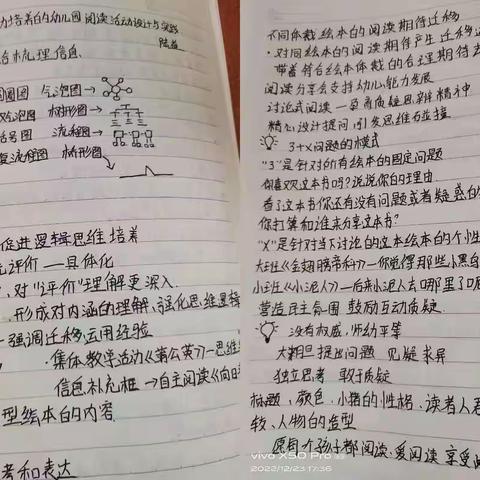 力培养的幼儿园阅读活动设计与实践
陆益
治梳理信息
圆圈图 气泡图→
双气泡图 树形图→
括号图 流程图→
复流程图 桥形图
促进逻辑思维培养
评价——具体化
、对"评价"理解更深入
形成对内涵的理解、强化思维逻辑
-强调迁移、运用经验
·集体教学活动《蒲公英》—思维
信息补充框→自主阅读《向日
型绘本的内容
考和表达
不同体裁绘本的阅读期待迁移
·对同绘本的阅读期待产生迁移
带着符合绘本体裁的合理期待去
阅读分享会支持幼儿能力发展
讨论式阅读—具有质疑思辨精神
精心设计提问引发思维碰撞
3+x问题的模式
"3"是针对所有绘本的固定问题
你喜欢这本书吗?说说你的理由
看了这本书你还有没有问题或者疑惑的
你打算和谁来分享这本书?
"X"是针对当下讨论的这本绘本的个性
大班《金翅膀帝科》—你觉得那些小黑鸟
小班《小泥人》—后来小泥人去哪里了呢
营造民主氛围 鼓励互动质疑
没有权威,师幼平等
大胆提出问题 见疑求异
独立思考 敢于质疑
标题、颜色、小猪的性格、读者人
较、人物的造型
愿每个孩子都阅读、爱阅读 享受
vivo X50 Pro
2022/12/23 17:36